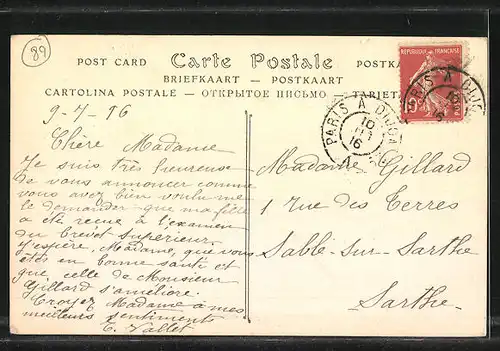 89
POST CARD Carte Postale POSTKA
BRIEFKAART — POSTKAART
CARTOLINA POSTALE — ОТКРЫТОЕ ПИСЬМО — TARJET
REPUBLIQUE FRANCAISE
PARIS A DIJON
10
16
9-7-16
Chère Madame
Je suis très heureuse
de vous annoncer comme
vous avez bien voulu me
le demander que ma fille
a été reçue à l'examen
du Brevet Supérieur.
J'espère, Madame, que vous
êtes en bonne santé et
que celle de Monsieur
Gillard s'améliore.
Croyez Madame à mes
meilleurs sentiments
E. Vallet
Madame Gillard
1 rue des Terres
Sablé-sur-Sarthe
Sarthe